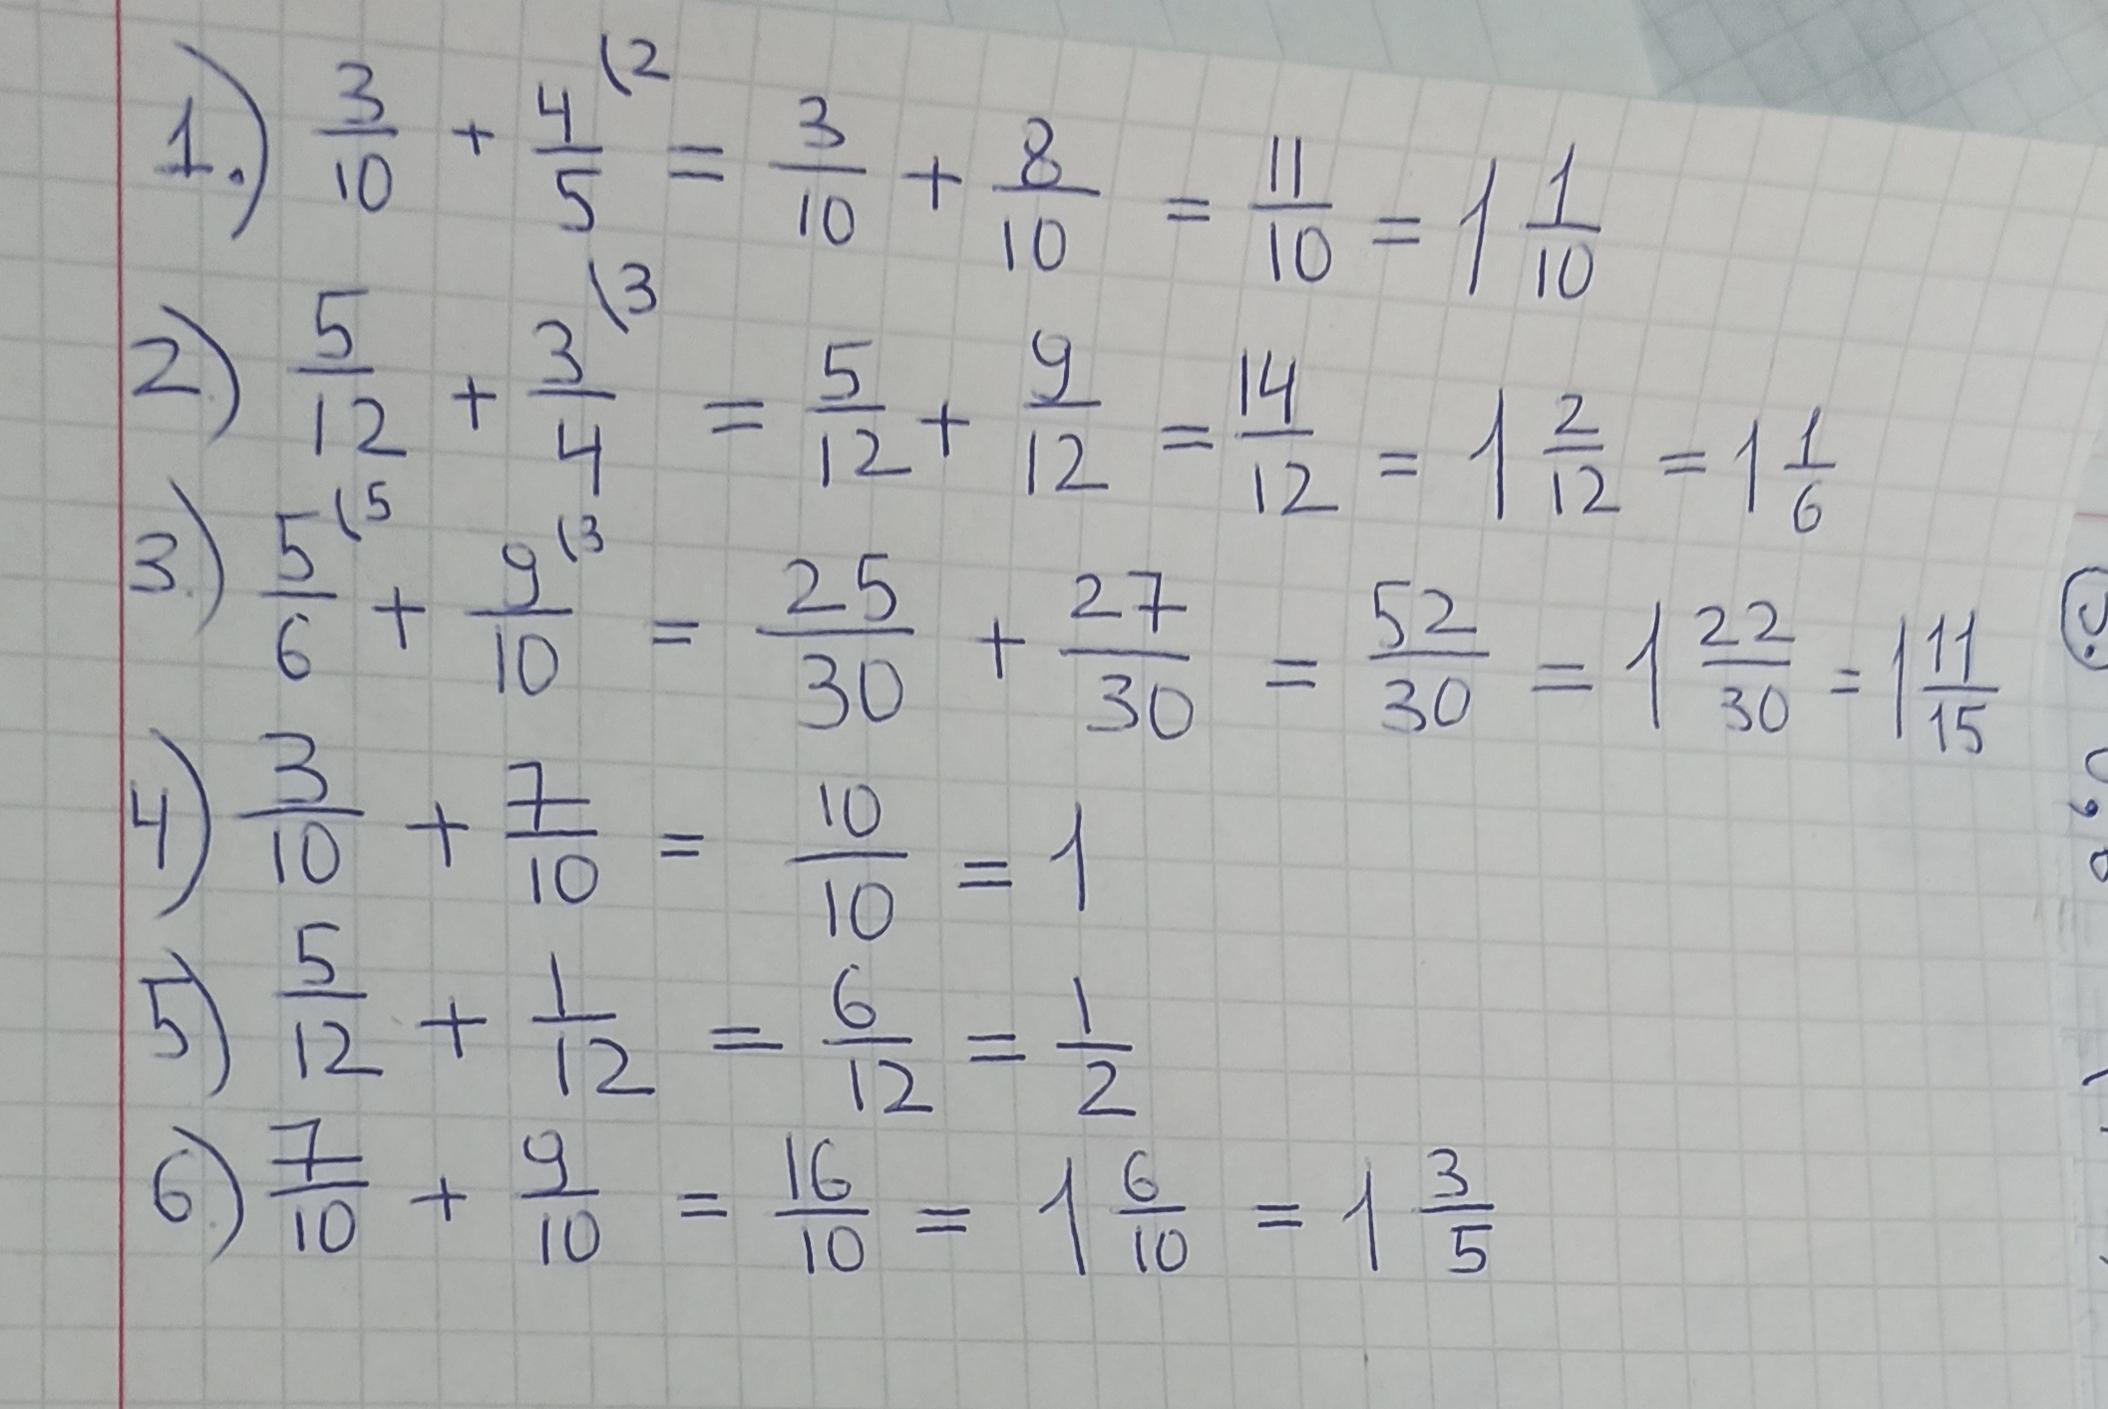 1.) 3/10 + 4/5 (2 = 3/10 + 8/10 = 11/10 = 1 1/10
2.) 5/12 + 3/4 (3 = 5/12 + 9/12 = 14/12 = 1 2/12 = 1 1/6
3.) 5/6 (5 + 9/10 (3 = 25/30 + 27/30 = 52/30 = 1 22/30 = 1 11/15
4) 3/10 + 7/10 = 10/10 = 1
5) 5/12 + 1/12 = 6/12 = 1/2
6.) 7/10 + 9/10 = 16/10 = 1 6/10 = 1 3/5